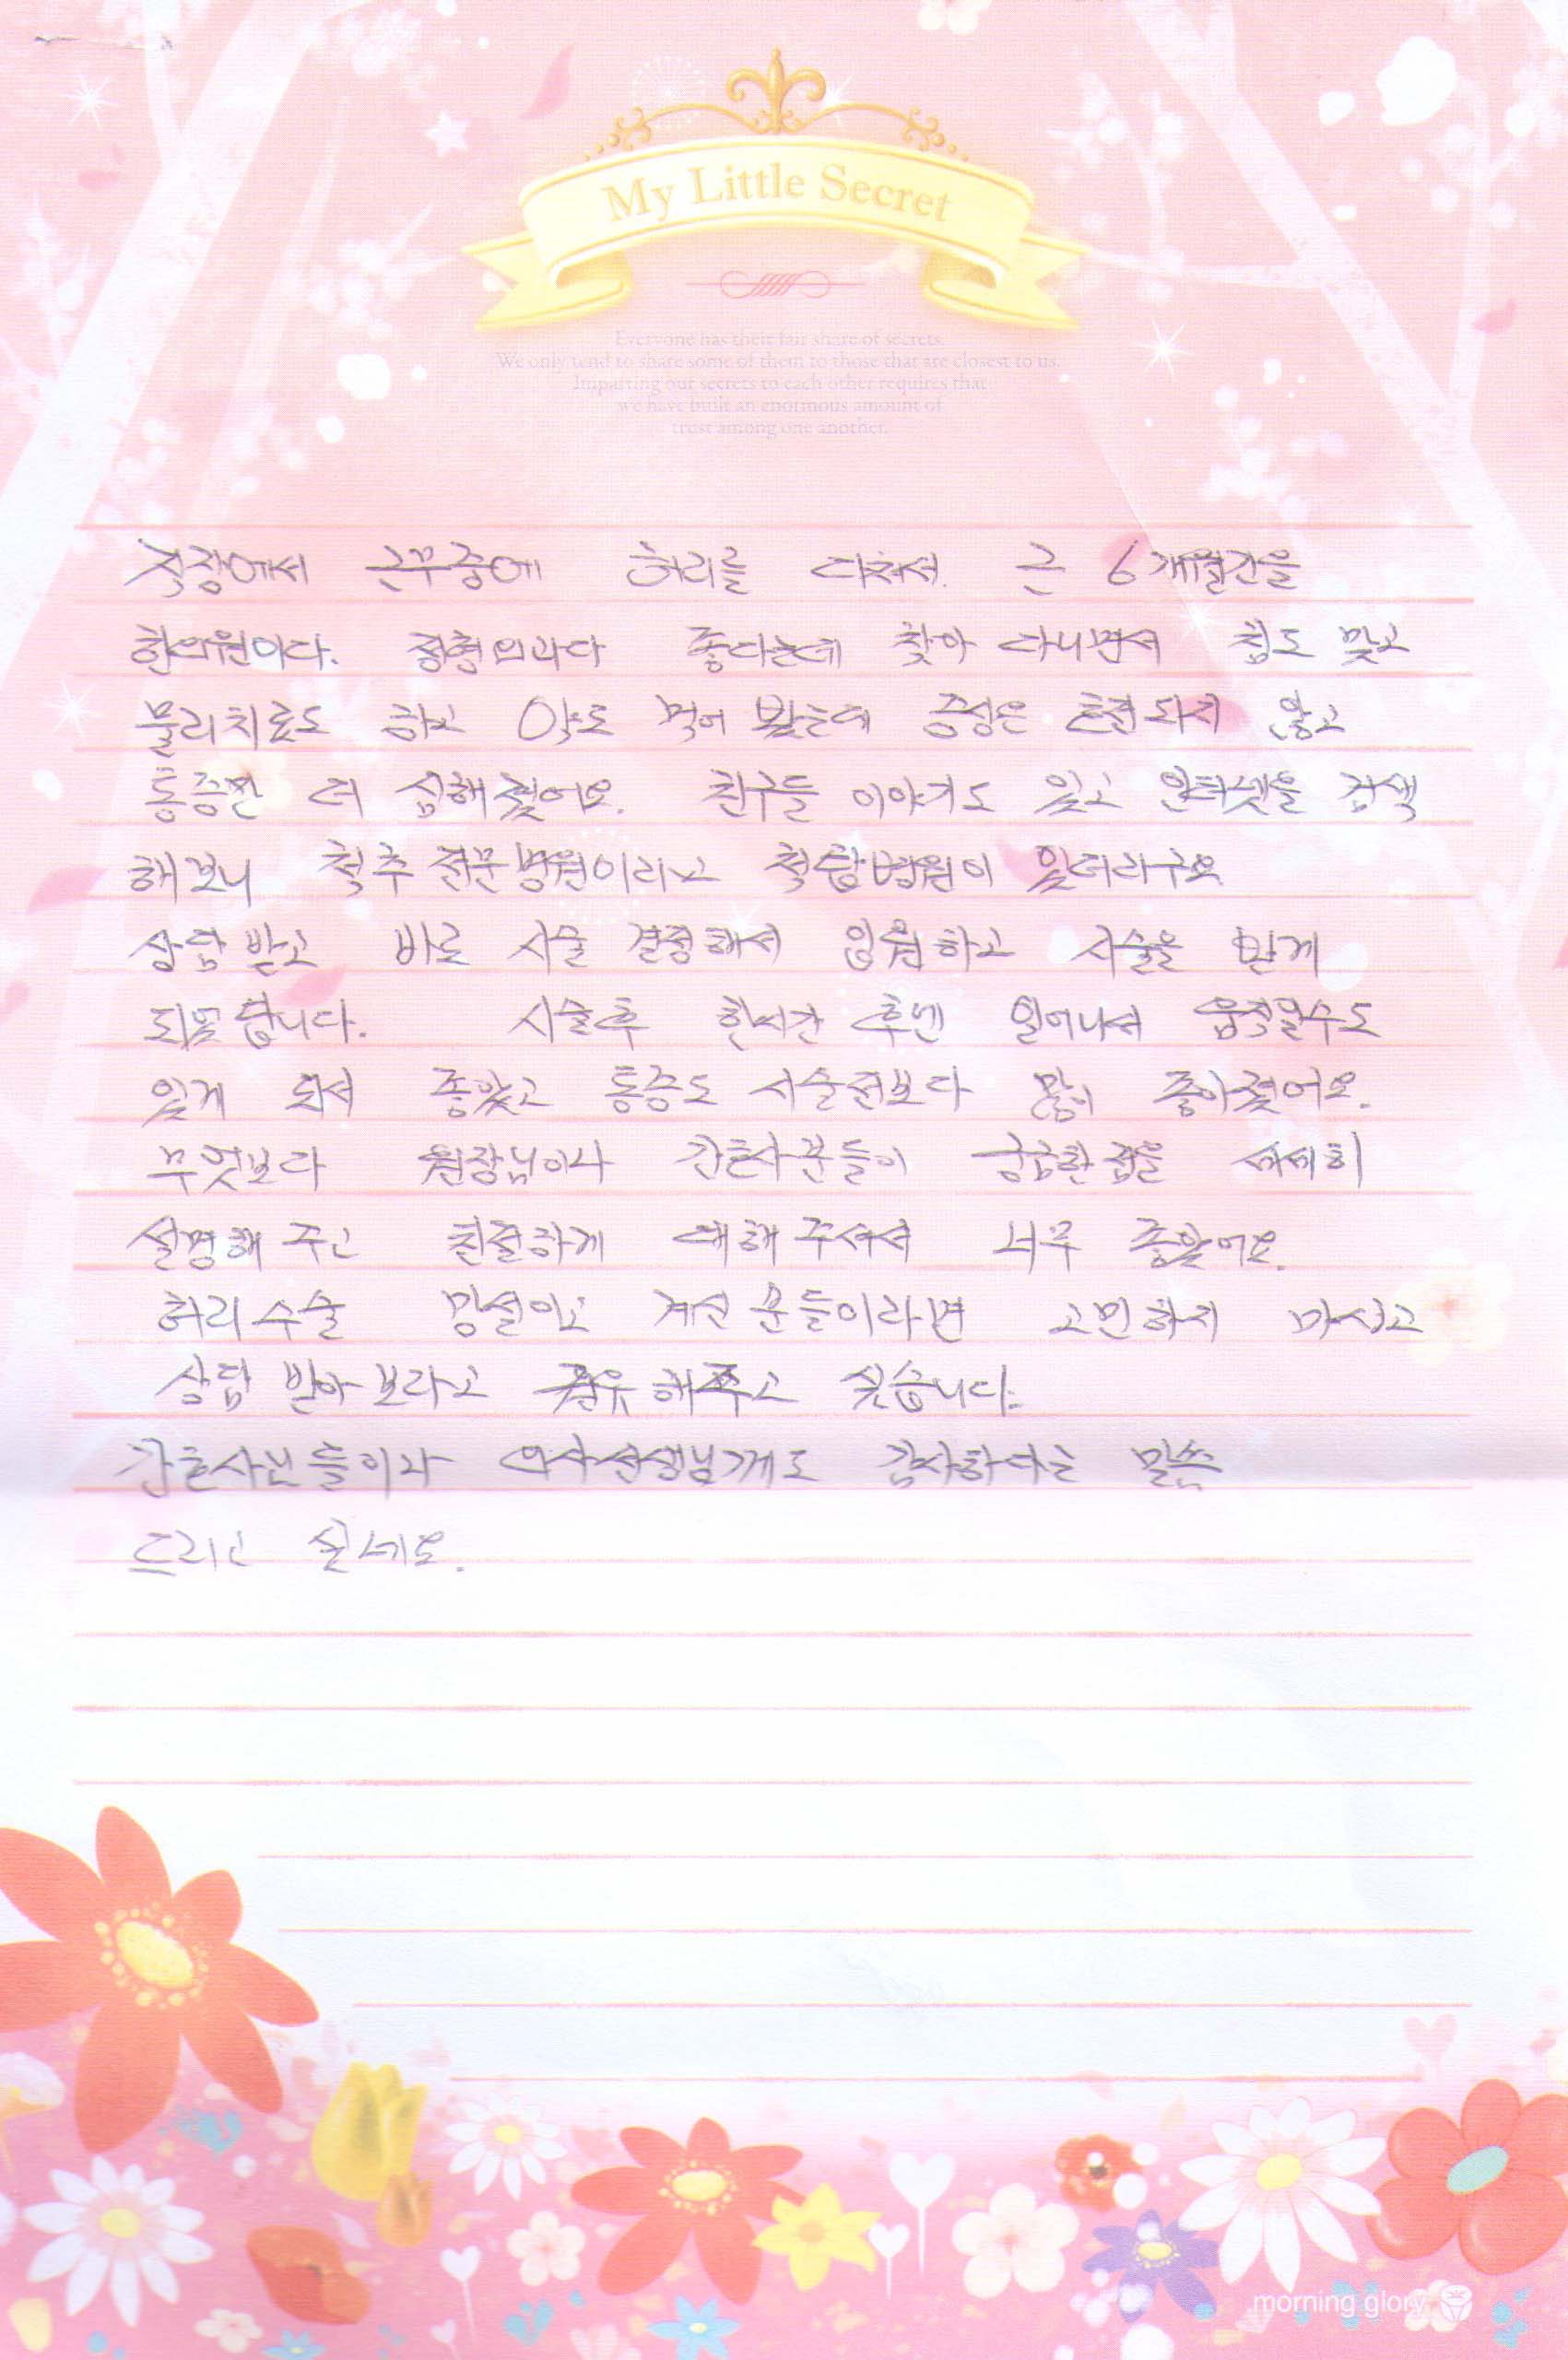 My Little Secret
Everyone has their fair share of secrets.
We only tend to share some of them to those that are closest to us.
Imparting our secrets to each other requires that
we have built an enormous amount of
trust among one another.
직장에서 근무중에 허리를 다쳐서. 근 6개월간을
한의원이다. 정형외과다 좋다는데 찾아 다니면서 침도 맞고
물리치료도 하고 약도 먹어 봤는데 증상은 호전되지 않고
통증만 더 심해졌어요. 친구들 이야기도 있고 인터넷을 검색
해보니 척추 전문병원이라고 척탑병원이 있더라구요
상담 받고 바로 시술 결정해서 입원하고 시술을 받게
되었습니다. 시술후 한시간 후엔 일어나서 움직일수도
있게 되서 좋았고 통증도 시술전보다 많이 좋아졌어요.
무엇보다 원장님이나 간호사분들이 궁금한점을 세세히
설명해 주고 친절하게 대해 주셔서 너무 좋았어요.
허리수술 망설이고 계신 분들이라면 고민하지 마시고
상담 받아보라고 권유해주고 싶습니다.
간호사분들이랑 의사선생님께도 감사하다는 말씀
드리고 싶네요.
morning glory